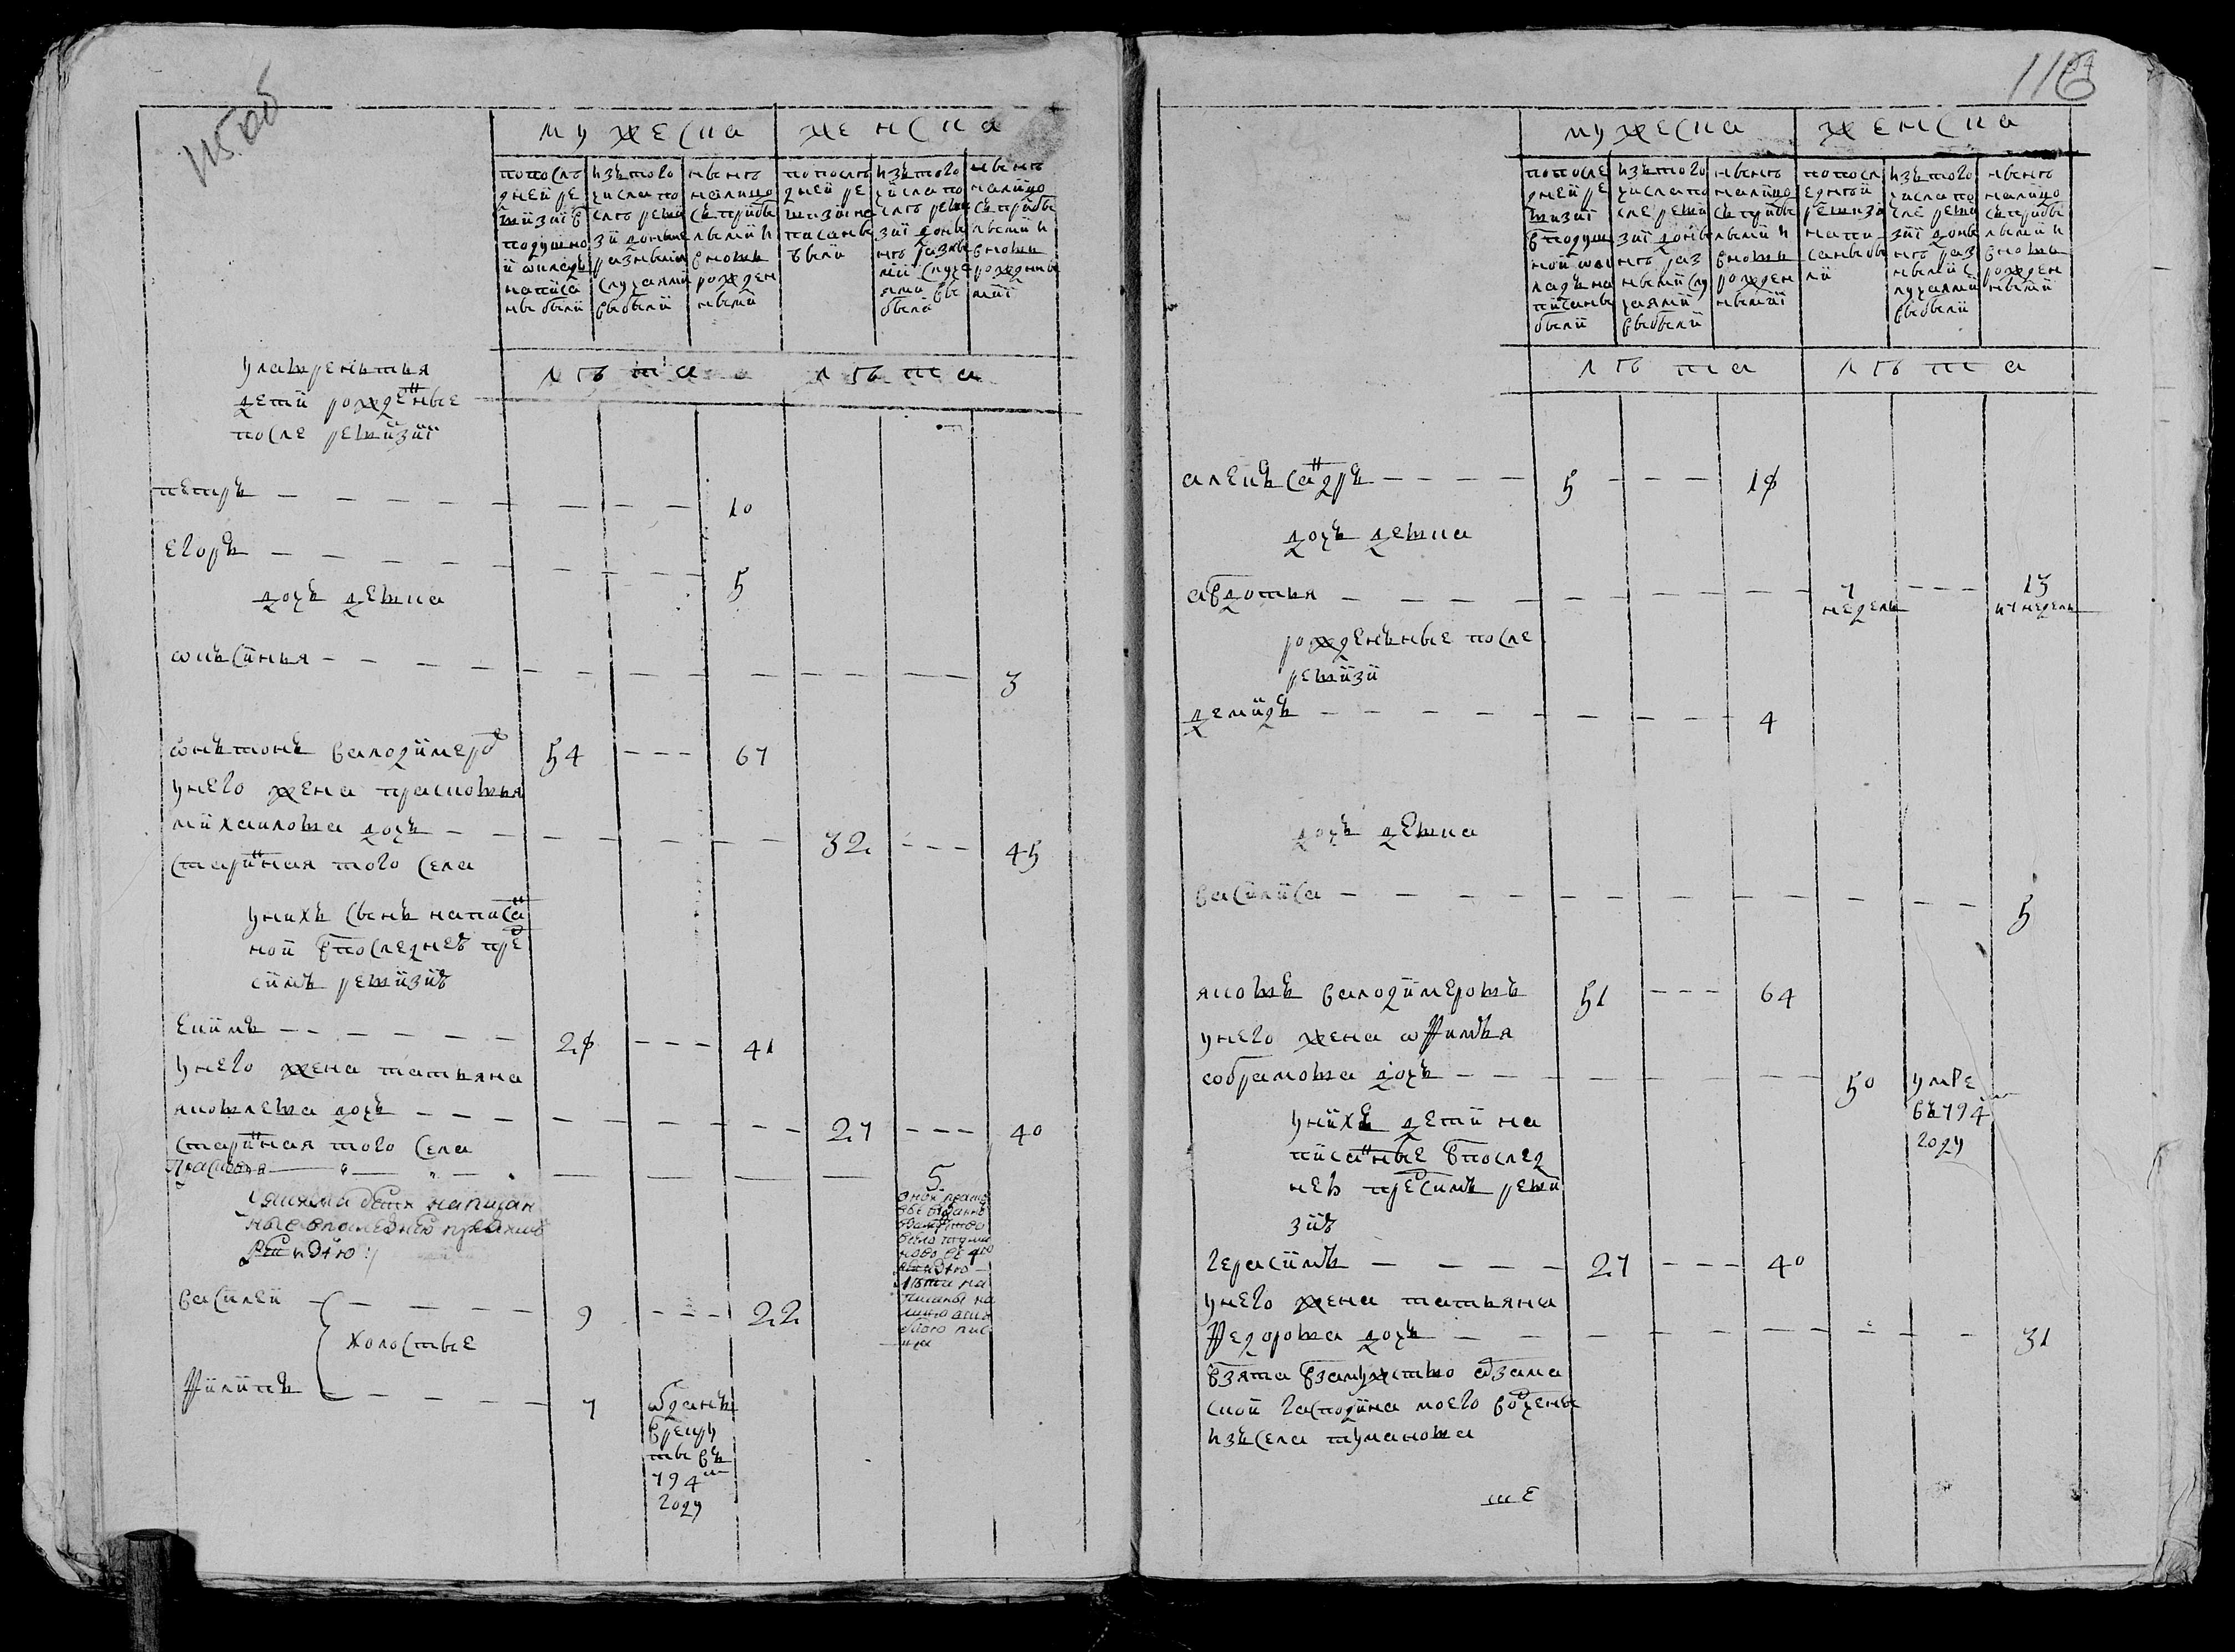 115 об
мужеска
женска
попосле
дней ре
визiи в
подушно
й окладъ
написа
ны были
изъ того
числа по
слѣ реви
зи доныне
разными
случаями
выбыли
ныне
налицо
съ прибы
лыми и
вновь
рожден
ными
попослѣ
дней ре
визiи на
писаны
были
изъ того
числа по
слѣ реви
зiи доны
нѣ разны
ми случа
ями вы
были
ныне
налицо
съ прибы
лыми и
вновь
рожденны
ми
лѣта
лѣта
улаврентья
дети рожденые
после ревизiи
петръ 10
егоръ 5
дочь девка
оксинья 3
онътонъ валодимеръ 54 67
унего жена прасковья
михаилова дочь 32 45
старинная того села
унихъ сынъ написа
ной впоследнеѣ пре
симъ ревизиѣ
екимъ 28 41
унего жена татьяна
яковлева дочь 27 40
старинная того села
прасковья 5
написан
ные впоследней пресимъ
василеи 9 22
холостые
филипъ 7
отданъ
врекру
ты въ
794м
году
116
мужеска
женска
попосле
дней ре
визiи
вподуш
ной ок
ладъ на
писаны
были
изъ того
числа по
сле реви
зiи доны
нѣ раз
ными слу
чаями
выбыли
ныне
налицо
съ прибы
лыми и
вновь
рожден
ными
попосл
едней
ревизи
напи
саны бы
ли
изъ того
числа по
сле реви
зiи доны
нѣ раз
ными с
лучаями
выбыли
ныне
налицо
съ прибы
лыми и
вновь
рожден
ными
лѣта
лѣта
алексанъдръ 5 18
дочь девка
авдотья 7 недель 13 и 7 недель
рожденъные после
ревизи
демидъ 4
дочь девка
василиса 5
яковъ валодимеровъ 51 64
унего жена офимья
обрамова дочь 50 умре
въ 794м
году
унихъ дети на
писанные впослед
неѣ пресимъ реви
зиѣ
герасимъ 27 40
унего жена татьяна
федорова дочь 31
взята взамужство
гасподина моего вотчены
изъ села туманова
ше